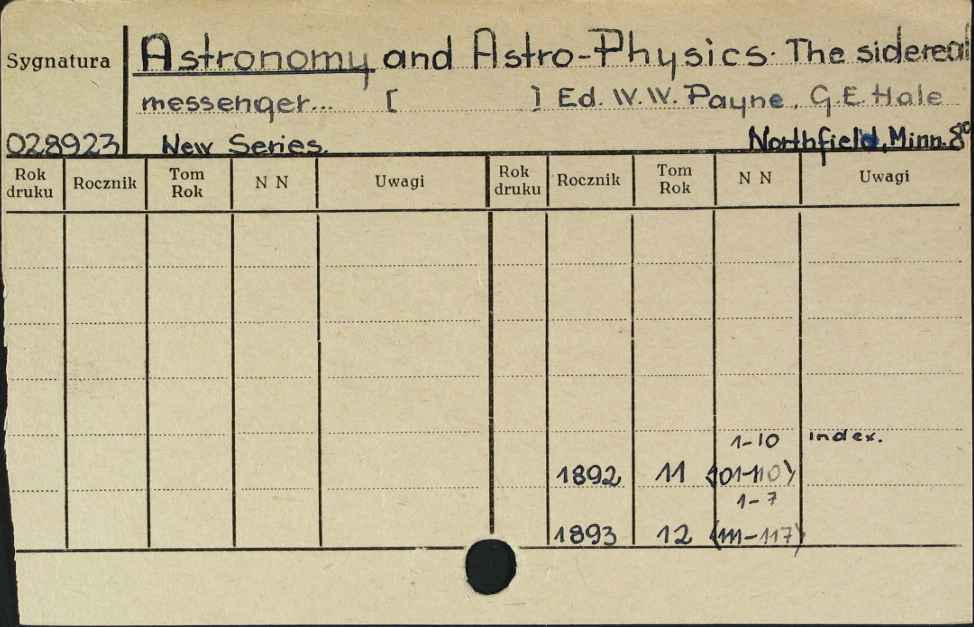 Sygnatura
Astronomy and Astro-Physics. The sidereal
messenger... [ ] Ed. W.W. Payne, G.E. Hale
028923 New Series. Northfield, Minn. 8°
Rok druku Rocznik Tom Rok N N Uwagi Rok druku Rocznik Tom Rok N N Uwagi
1-10 index.
1892 11 (101-110)
1-7
1893 12 (111-117)